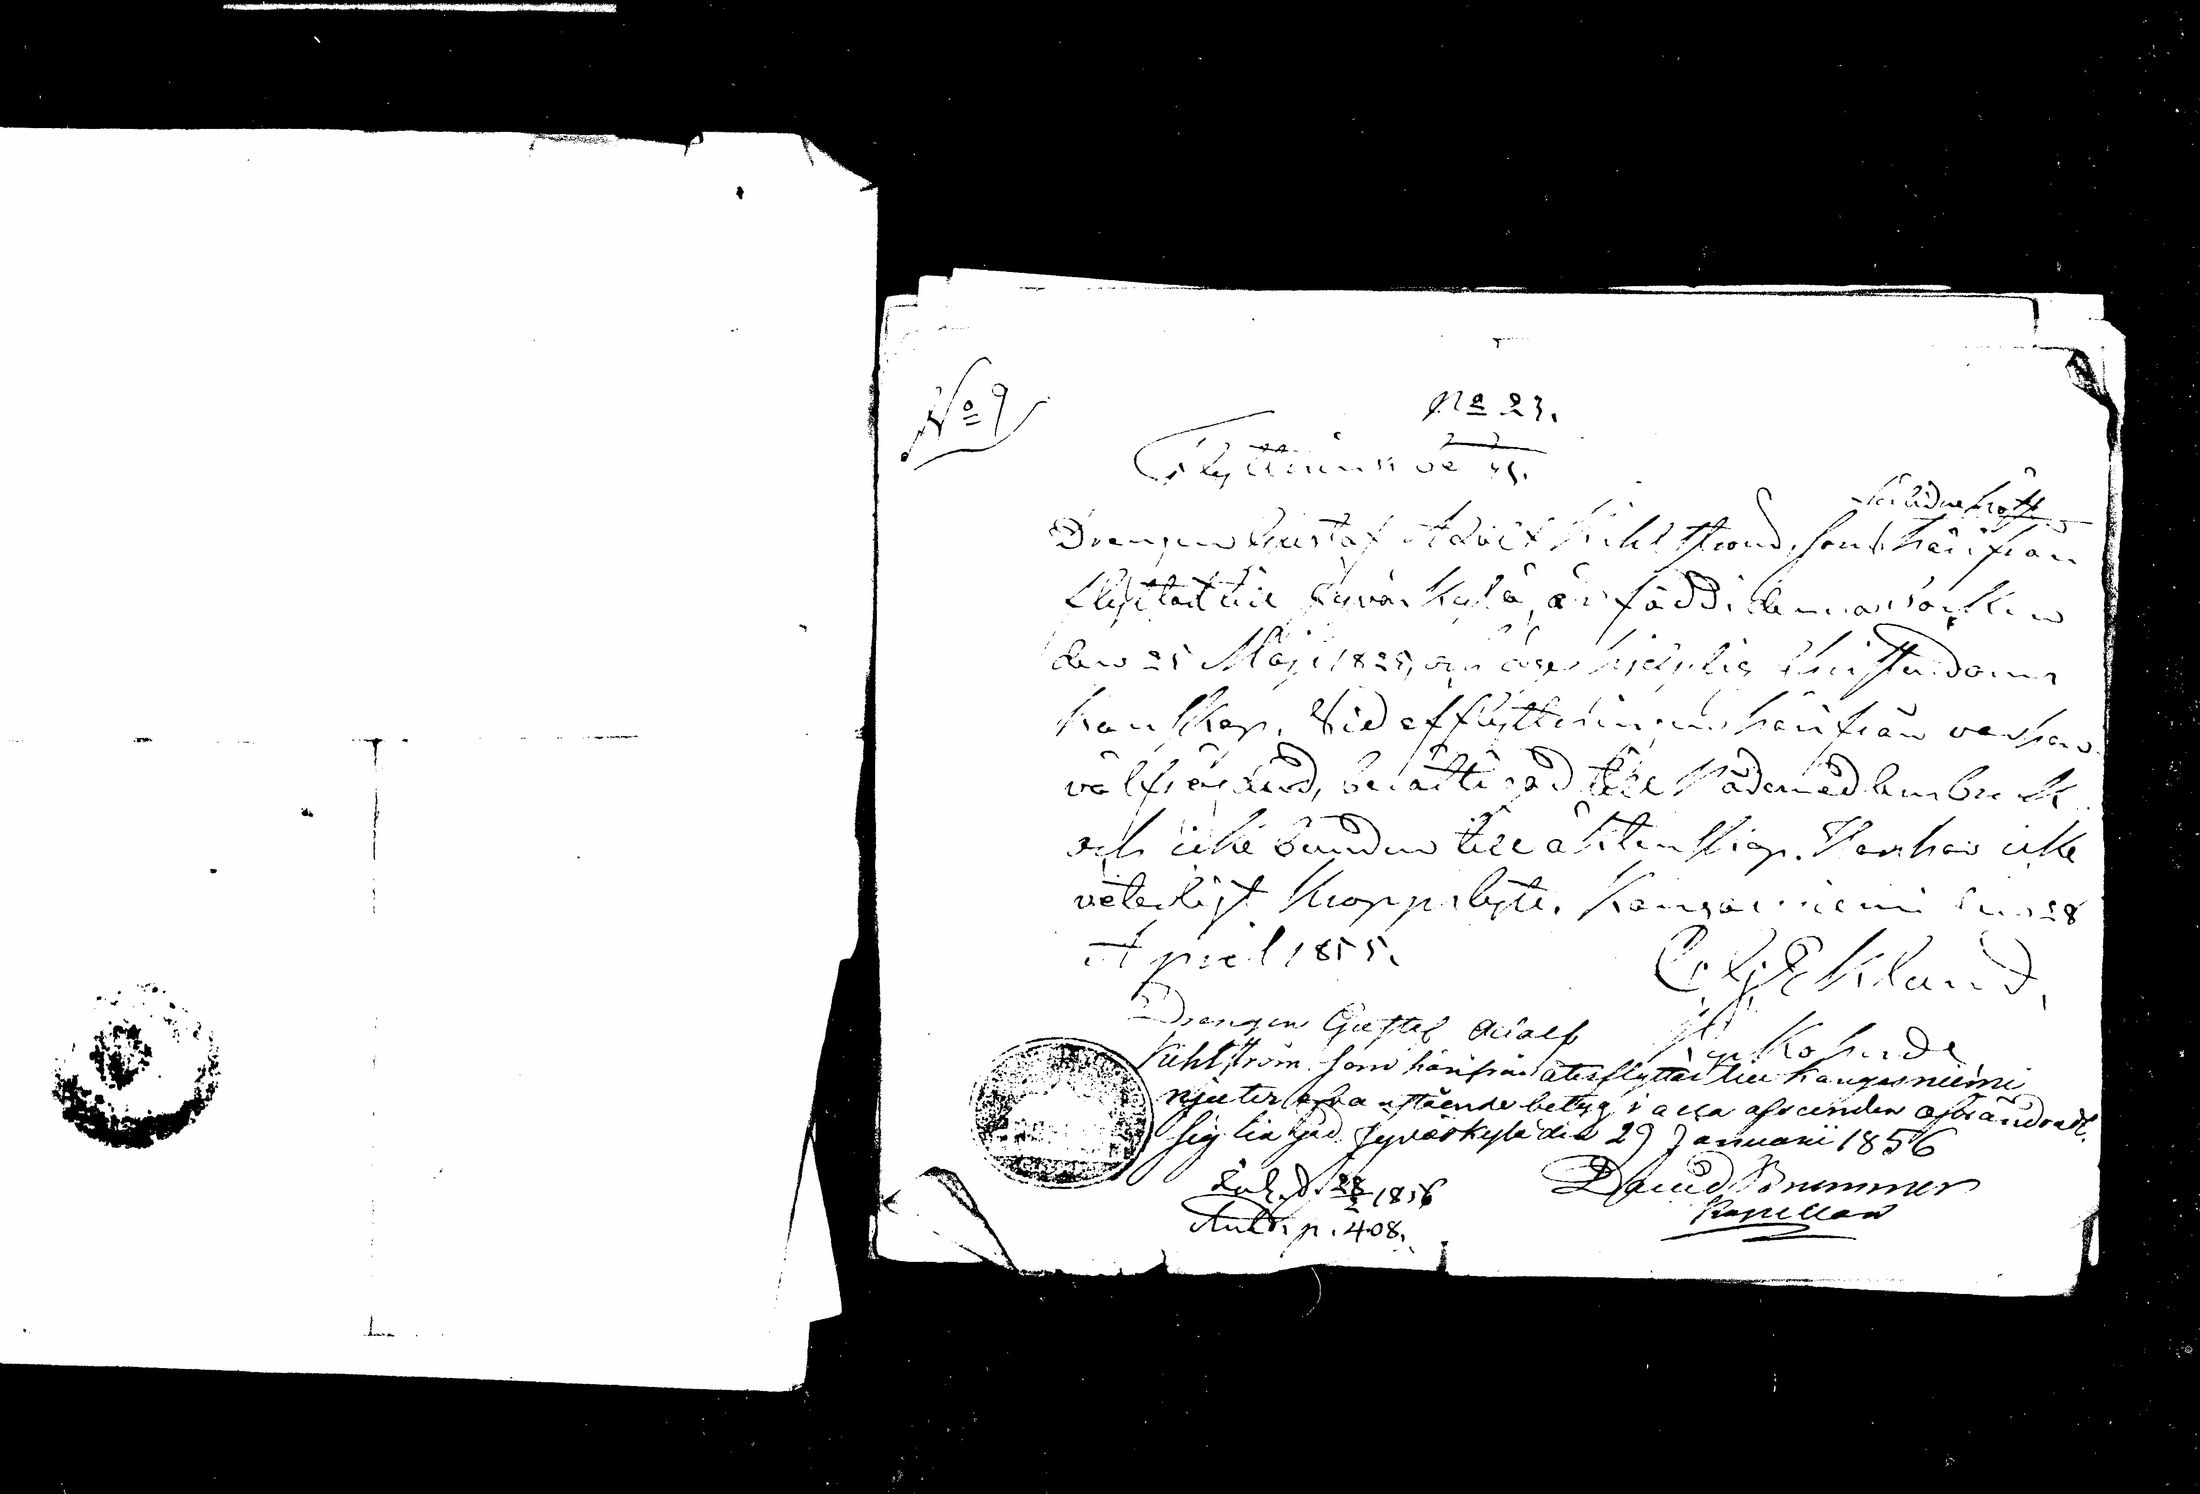 No 9
No 23.
Flyttnings be
Drengen Gustaf Adolf Kihlström, som härifrån
flyttat till Jyväskylä, är född i denna socken
den 25 Maji 1825, och äger hjelplig Christendoms
kunskap. Vid afflyttningen härifrån var han
välfrägdad, berättigad till Nådemedlens bruk
och icke bunden till äktenskap. Han har icke
veterligt kroppslyte. Kangasniemi den 28
April 1855.
Ekland,
Drengen Gustaf Adolf
Kihlström som härifrån återflyttar till Kangasniemi
njuter ofvanstående betyg i alla afseenden oförändradt.
Jyväskylä den 29 Januarii 1856
David Brummer
Kapellan
1856
p. 408.